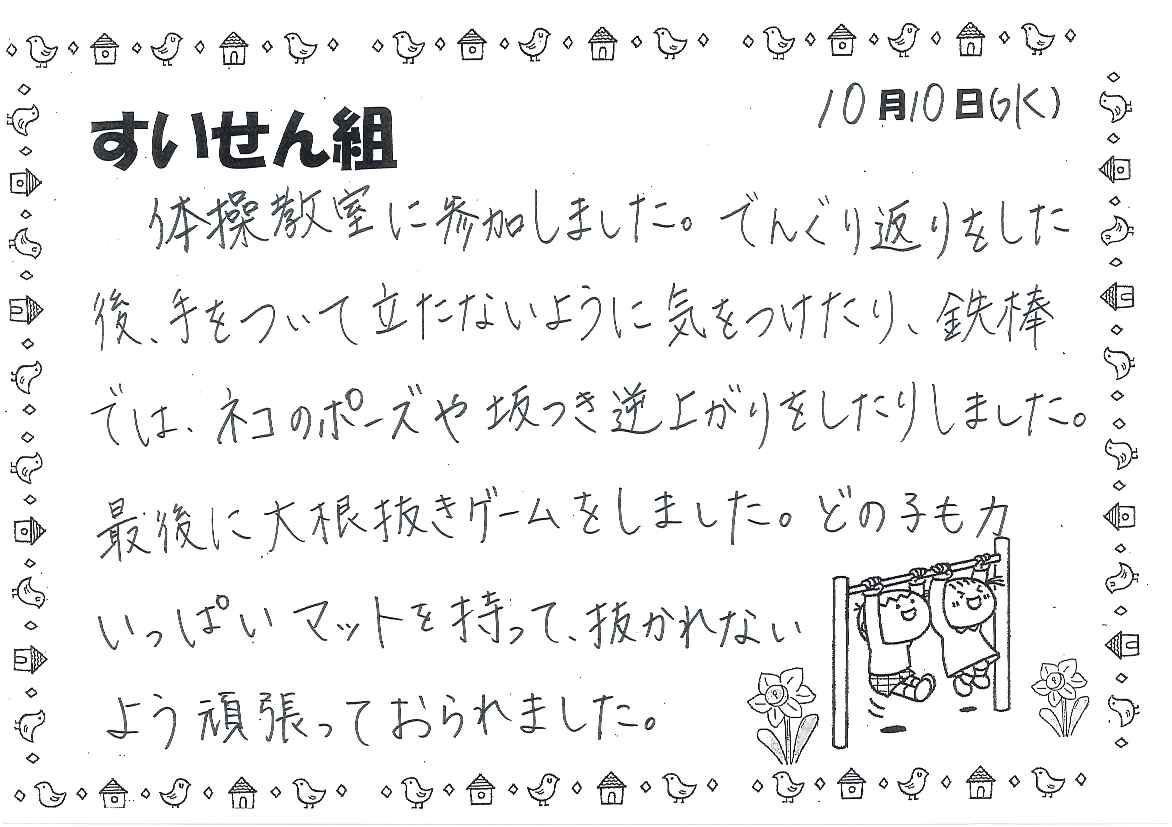 10月10日(水)
すいせん組
体操教室に参加しました。でんぐり返りをした
後、手をついて立たないように気をつけたり、鉄棒
では、ネコのポーズや坂つき逆上がりをしたりしました。
最後に大根抜きゲームをしました。どの子も力
いっぱいマットを持って、抜かれない
よう頑張っておられました。